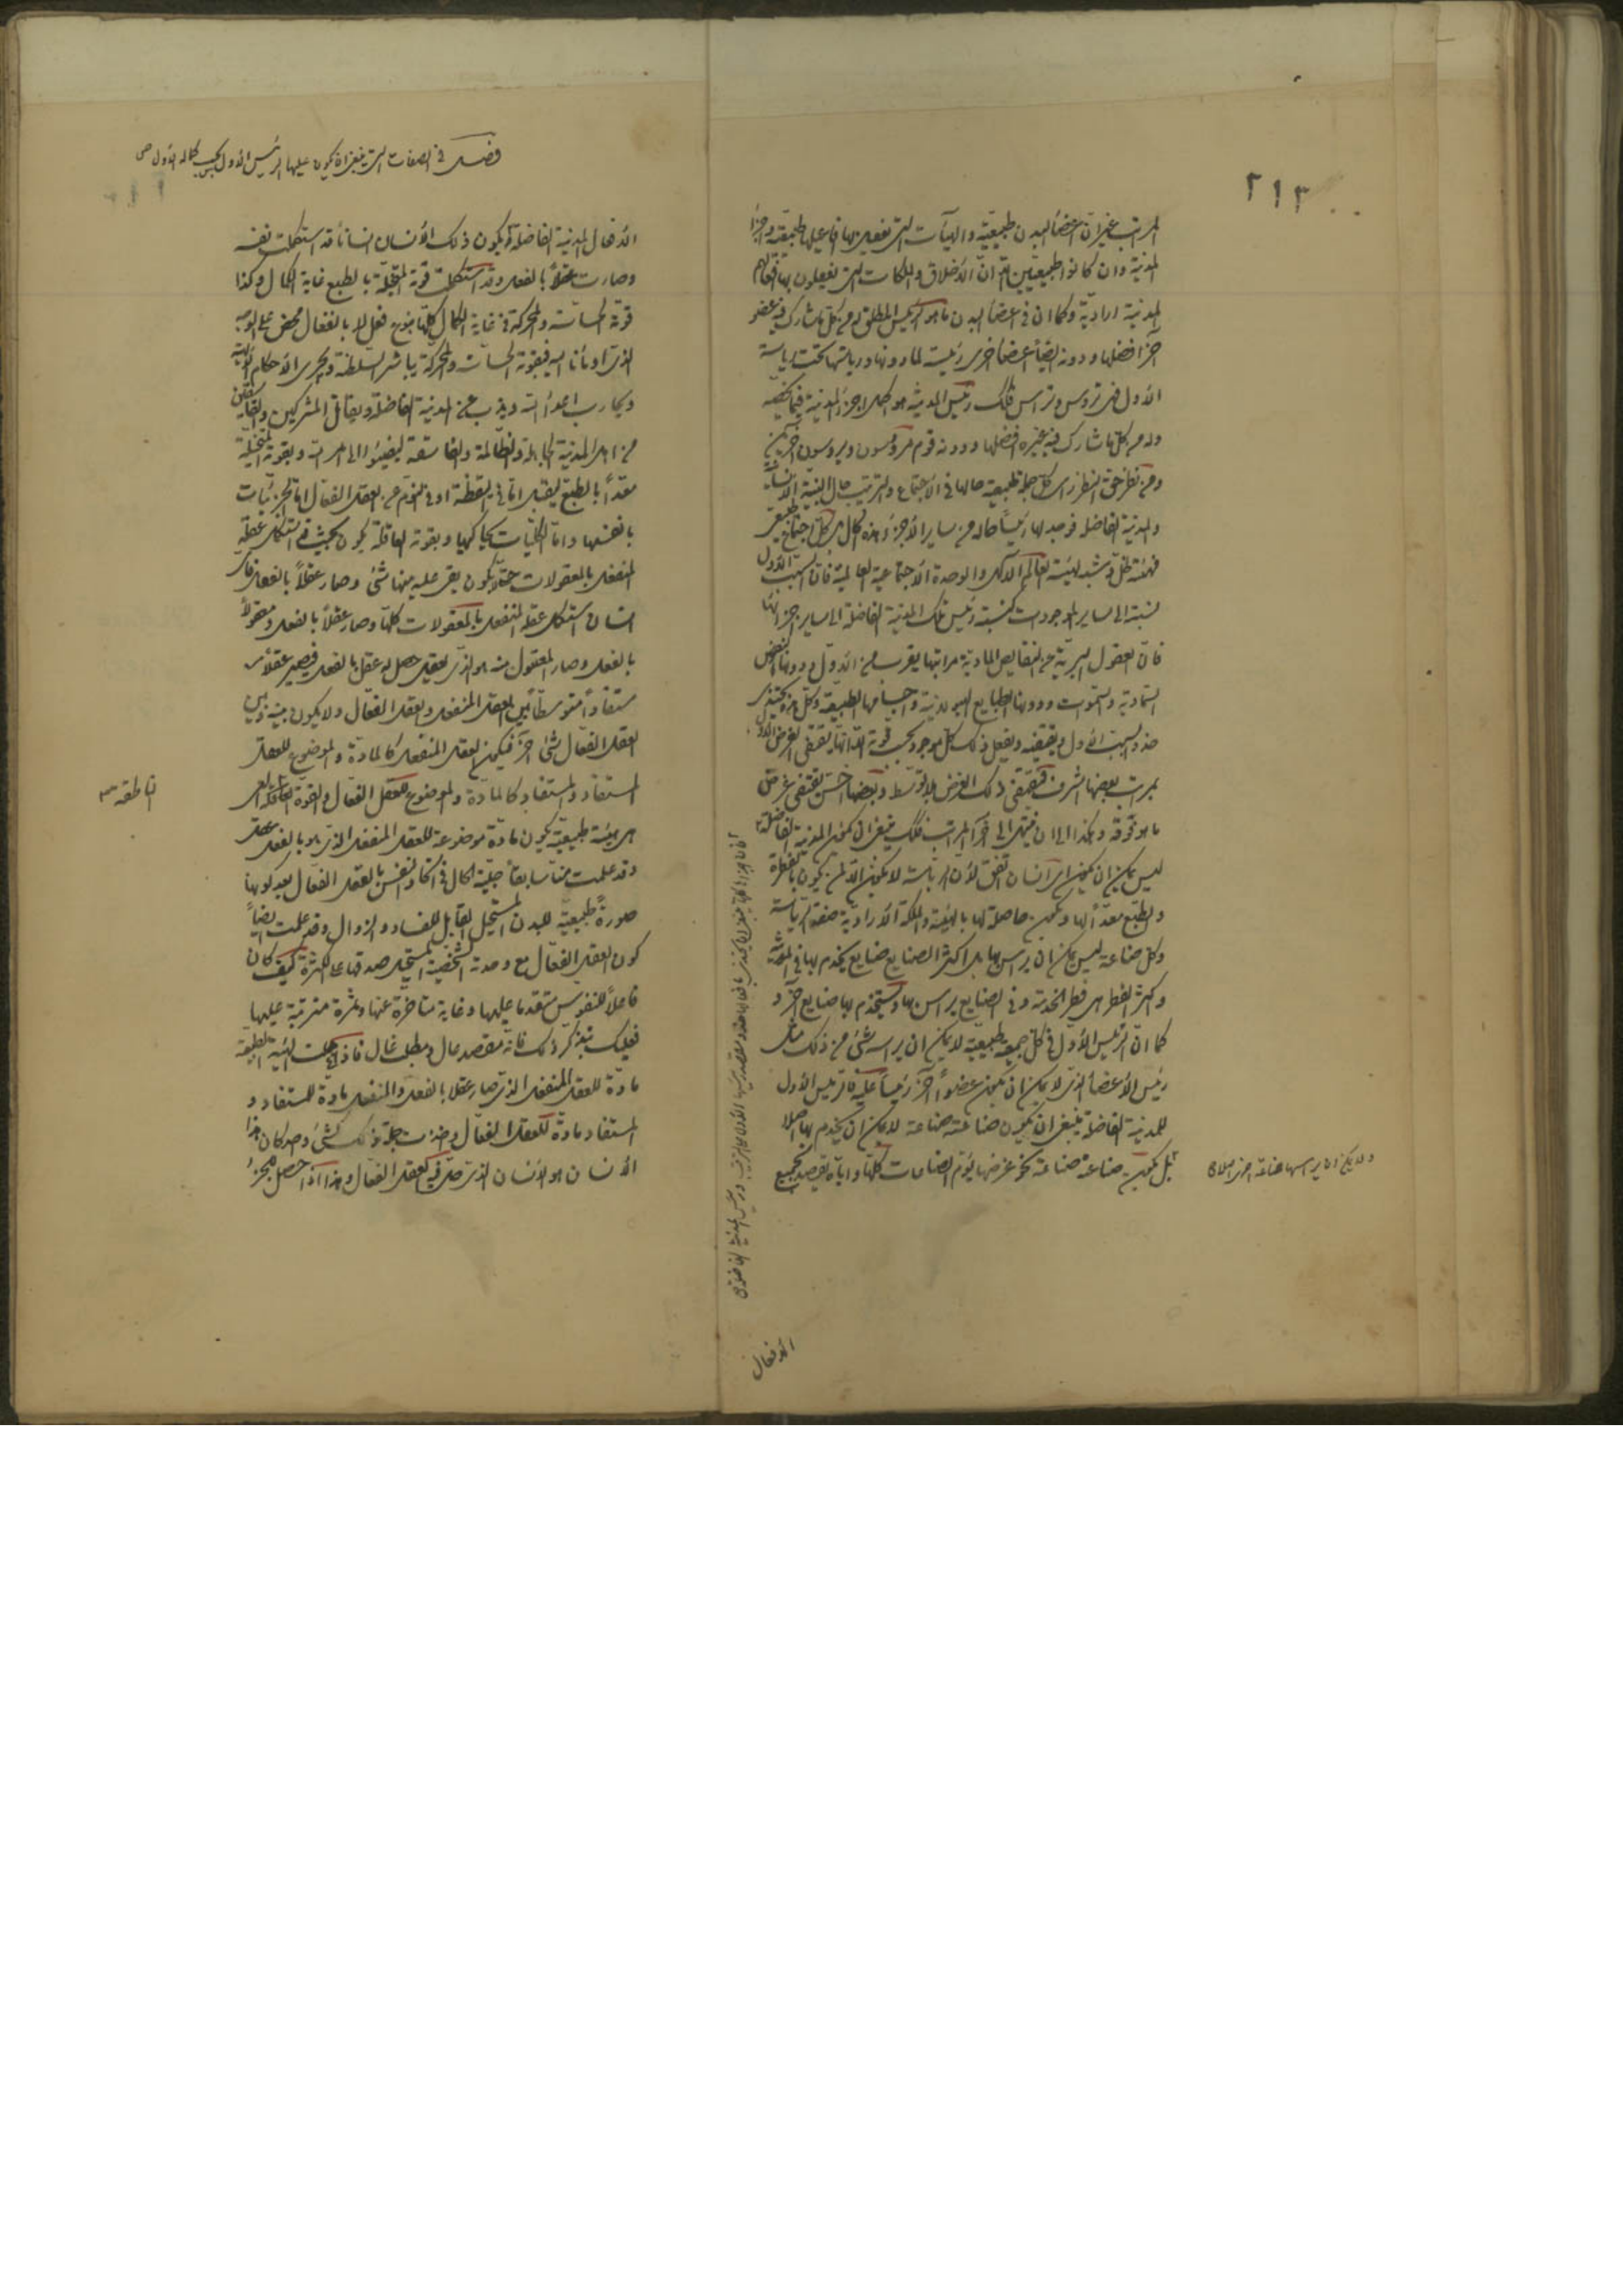 ٢١٣
المراتب غير ان اعضاء البدن طبيعية والهيآت التى تفعل بها افاعيلها طبيعية واجزاء
المدينة وان كانوا طبيعيين الا ان الاخلاق والملكات التى يفعلون بها افعالهم
المدينة ارادية وكما ان فى اعضاء البدن ما هو الرئيس المطلق وله من كل ما يشارك فيه عضو
آخر افضلها ودونه ايضا اعضاء اخرى رئيسة لما دونها ورياستها تحت رياسة
الاول فهى ترؤس وتراس فكذلك رئيس المدينة هو اكمل اجزاء المدينة فيما يخصه
وله من كل ما شارك فيه غيره افضلها ودونه قوم مرؤسون ويروسون آخرين
ومن نظر حق النظر راى كل جملة طبيعية حالها فى الاجتماع والترتيب حال البنية الانسانية
والمدينة الفاضلة فوجد لها رئيسا حاله من ساير الاجزاء هذه الحال بل كل اجتماع طبيعى
فهيئته ظل وشبه لهيئة العالم الاكبر والوحدة الاجتماعية العالمية فان السبب الاول
نسبته الى ساير الموجودات كنسبة رئيس تلك المدينة الفاضلة الى ساير اجزائها
فان العقول البرية عن النقايص المادية مراتبها يقرب من الاول ودونها النفوس
السماوية والسموات ودونها الطبايع الهيولانية واجسامها الطبيعية وكل هذه يحتذى
حذو السبب الاول ويقتفيه ويفعل ذلك كل موجود بحسب قوته الا انها يقتفى الغرض الاول
بمراتب بعضها اشرف فيقتفى ذلك الغرض بلا توسط وبعضها اخس يقتفى غرض
ما هو فوقه وهكذا الى ان ينتهى الى آخر المراتب فكذلك ينبغى ان يكون المدينة الفاضلة
ليس يمكن ان يكون اى انسان اتفق لان الرياسة لا يكون الا لمن يكون بالفطرة
والطبع معدا لها ويكون حاصلة لها بالهيئة والملكة الارادية صفة الرياسة
وكل صناعة ليس يمكن ان يراس بها بل اكثر الصنايع صنايع يخدم بها فى المدينة
واكثر الفطر هى فطر الخدمة وفى الصنايع يراس بها ويستخدم بها صنايع آخر و
كما ان الرئيس الاول فى كل جمعية طبيعية لا يمكن ان يراسه شئ من ذلك مثل
رئيس الاعضاء الذى لا يمكن ان يكون عضوا آخر رئيسا عليه فالرئيس الاول
للمدينة الفاضلة ينبغى ان يكون صناعته صناعة لا يمكن ان يخدم بها اصلا
بل يكون صناعة صناعة نحو غرضها يؤم الصناعات كلها واياه يقصد بجميع
ولا يمكن ان يراسها صناعة اخرى اصلا
الافعال
فصل فى الصفات التى ينبغى ان يكون عليها الرئيس الاول بحسب كماله الاول
الافعال المدينة الفاضلة ويكون ذلك الانسان انسانا قد استكملت نفسه
وصارت عقلا بالفعل وقد استكملت قوته المتخيلة بالطبع غاية الكمال وكذا
قوته الحساسة والمحركة فى غاية الكمال كلها بنوع فعل لا بانفعال محض على الوجه
الذى اومأنا اليه فبقوته الحساسة والمحركة يباشر السلطنة ويجرى الاحكام الالهية
ويحارب اعداء الله ويذب عن المدينة الفاضلة ويقاتل المشركين والفاسقين
من اهل المدينة الجاهلة والظالمة والفاسقة ليفيئوا الى امر الله وبقوته المتخيلة
معدا بالطبع ليقبل اما فى اليقظة او فى النوم عن العقل الفعال اما الجزئيات
بانفسها واما الكليات بحاكيها وبقوته العاقلة يكون بحيث قد استكمل عقله
المنفعل بالمعقولات حتى لا يكون بقى عليه منها شئ وصار عقلا بالفعل فاى
انسان استكمل عقله المنفعل بالمعقولات كلها وصار عقلا بالفعل ومعقولا
بالفعل وصار المعقول منه هو الذى يعقل حصل له عقل بالفعل فيصير عقلا
مستفادا متوسطا بين العقل المنفعل والعقل الفعال ولا يكون بينه وبين
العقل الفعال شئ آخر فيكون العقل المنفعل كالمادة والموضوع للعقل
المستفاد والمستفاد كالمادة والموضوع للعقل الفعال والقوة العاقلة التى
هى هيئة طبيعية يكون مادة موضوعة للعقل المنفعل الذى هو بالفعل عقل
الناطقة
وقد علمت منا سابقا جلية الحال فى اتحاد النفس بالعقل الفعال بعد كونها
صورة طبيعية للبدن المستحيل القابل للفساد والزوال وقد علمت ايضا
كون العقل الفعال مع وحدته الشخصية المستحيل صدقها على الكثرة كيف كان
فاعلا للنفوس متقدما عليها وغاية متاخرة عنها وثمرة مترتبة عليها
فعليك بتذكر ذلك فانه مقصد عال ومطلب غال فاذا جعلت الهيئة الطبيعية
مادة للعقل المنفعل الذى صار عقلا بالفعل والمنفعل مادة للمستفاد و
المستفاد مادة للعقل الفعال واخذت جملة ذلك كشئ واحد كان هذا
الانسان هو الانسان الذى حل فيه العقل الفعال وهذا اذا حصل للجزء